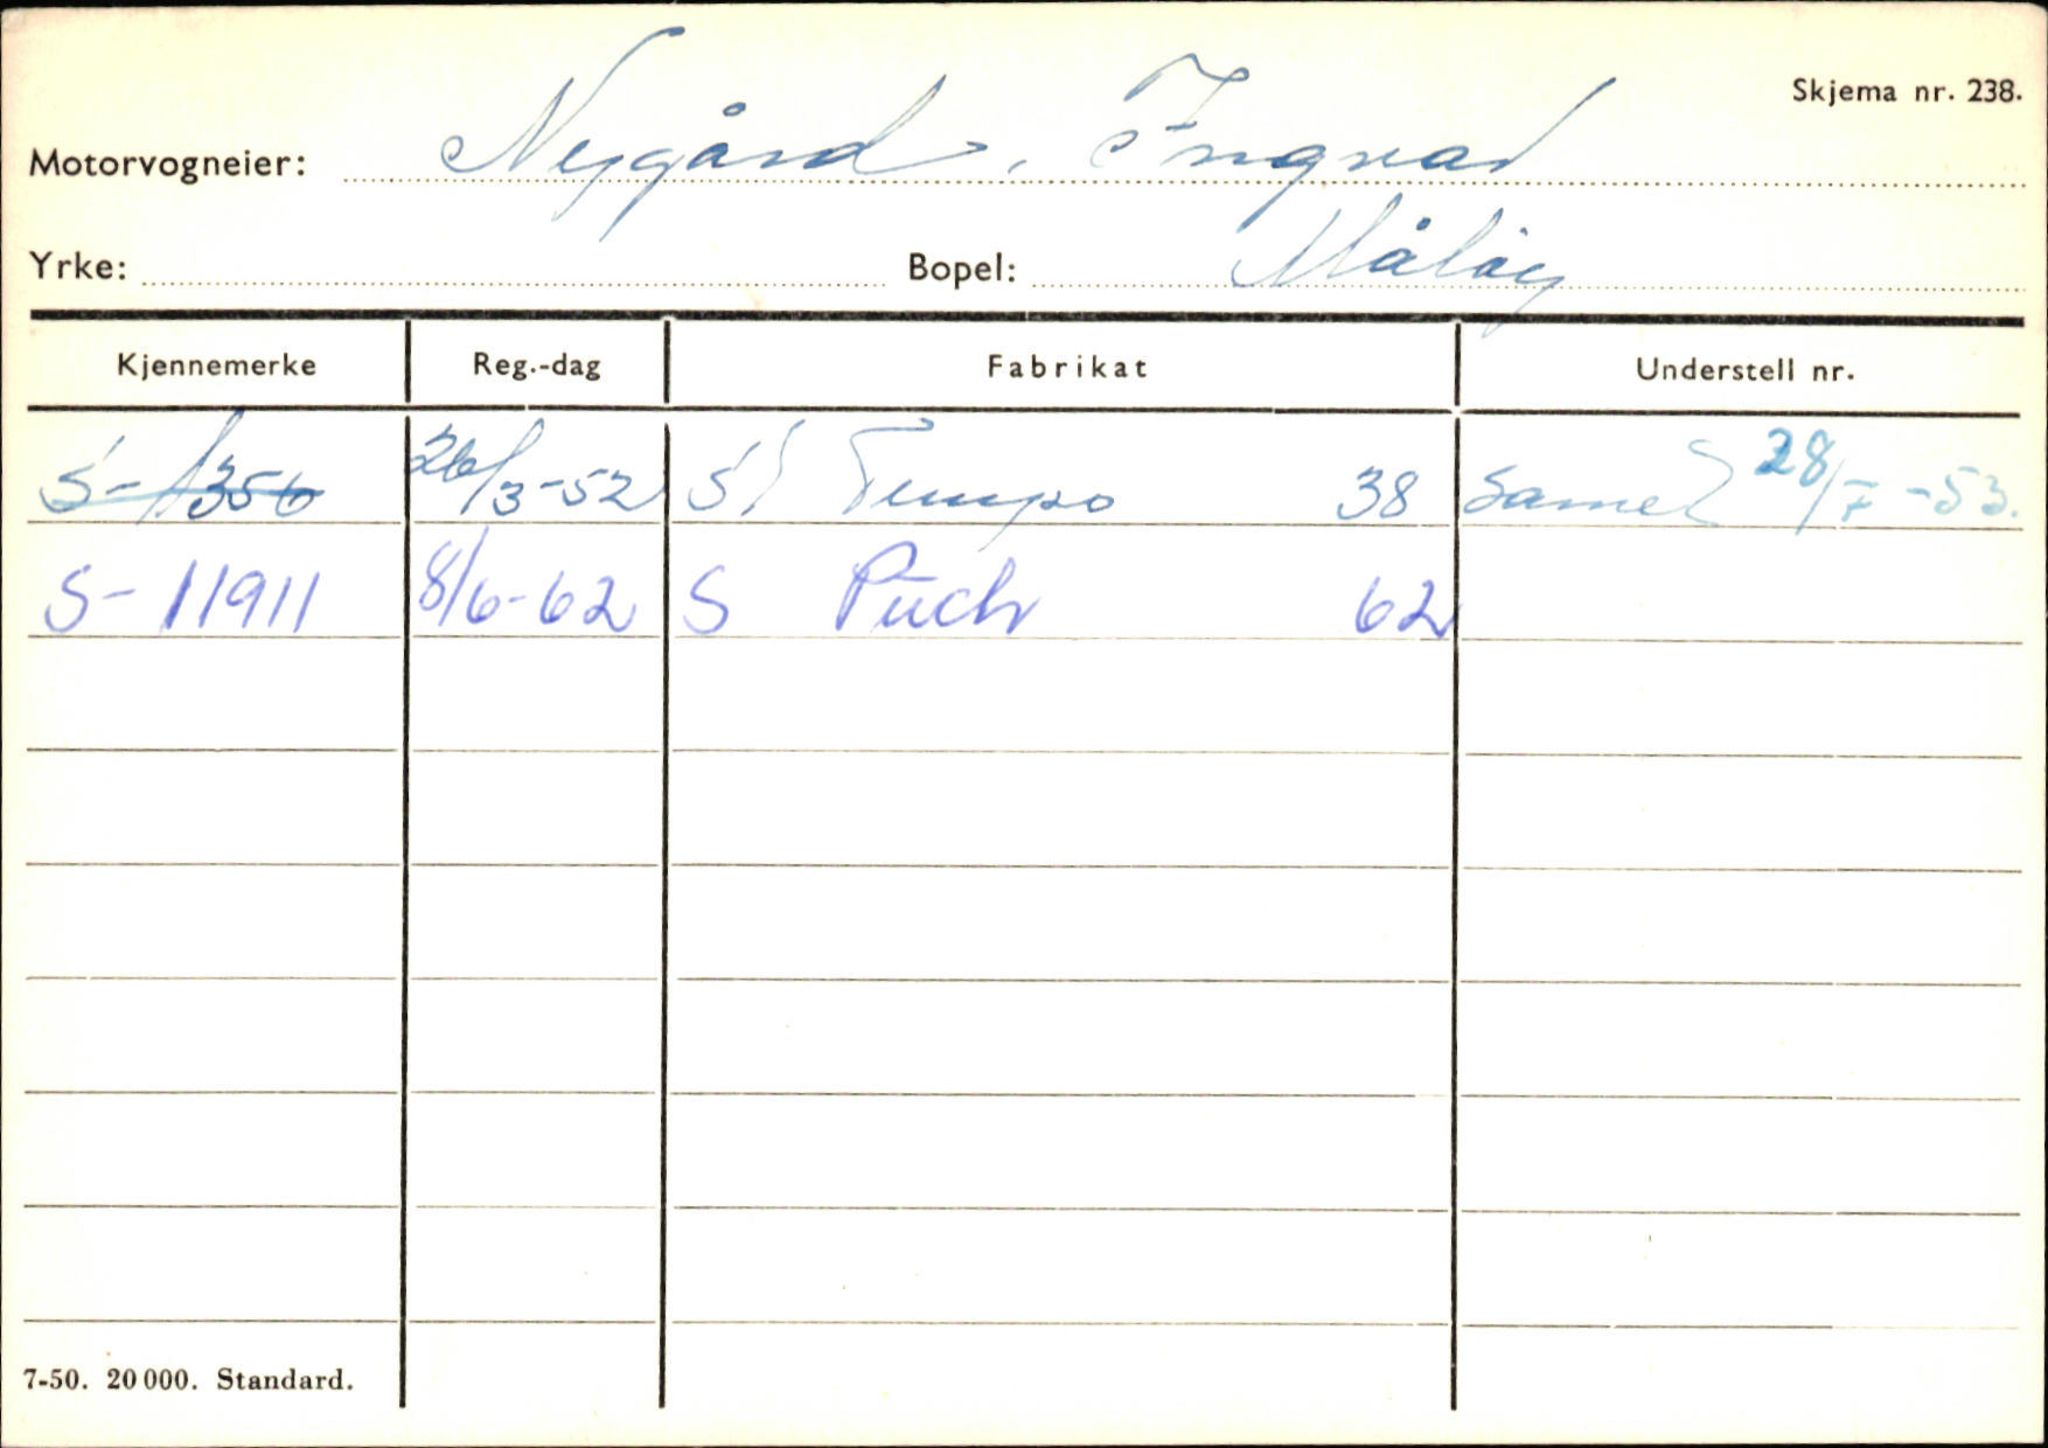 Skjema nr. 238.
Motorvogneier: Nygård, Ingvad
Yrke: Bopel: Måløy
Kjennemerke Reg.-dag Fabrikat Understell nr.
S-1356 26/3-52 S/ Tempo 38 Samel 28/7-53.
S-11911 8/6-62 S Puch 62
7-50. 20 000. Standard.